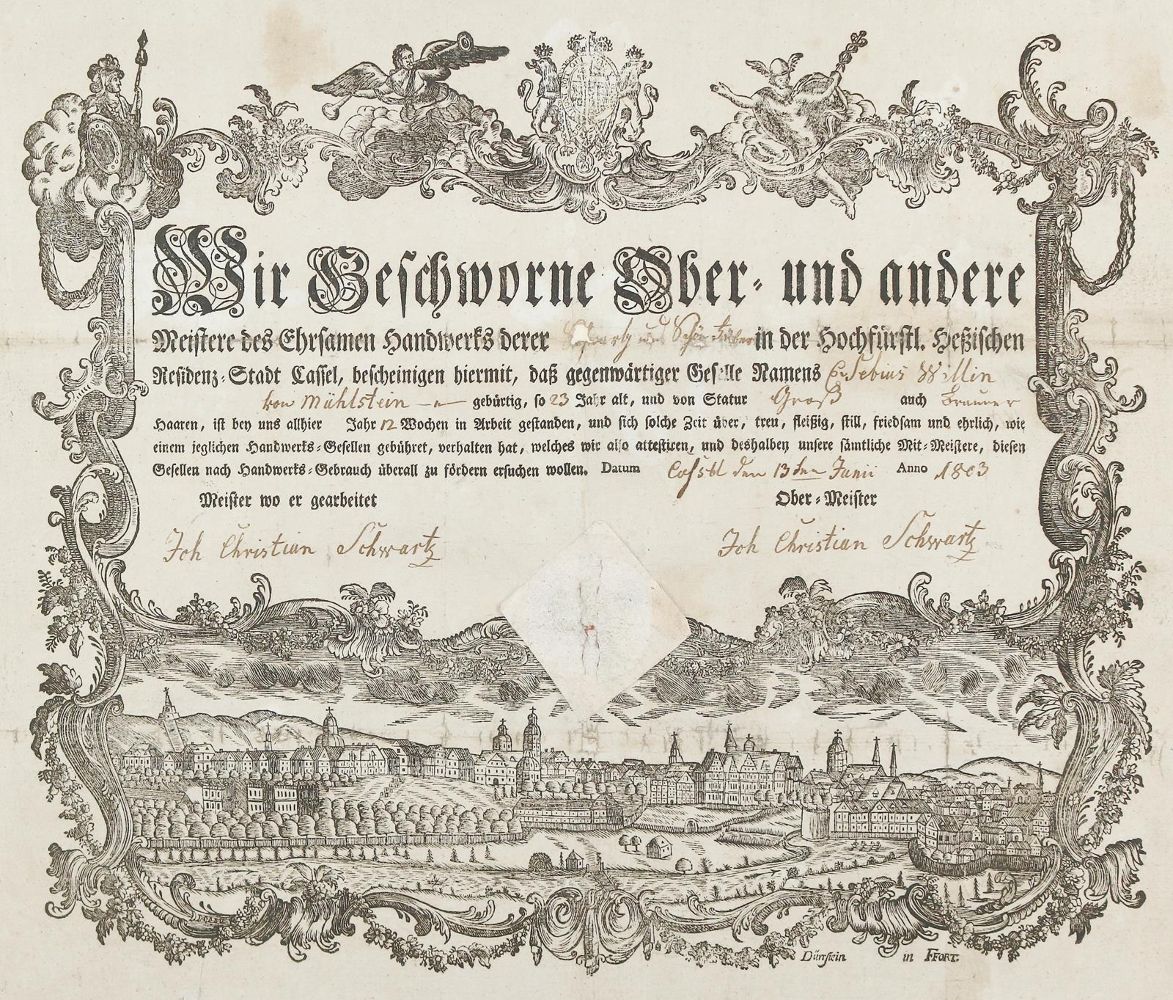 Wir Geschworne Ober- und andere
Meistere des Ehrsamen Handwerks derer Schwartz und Schön Färber in der Hochfürstl. Heßischen
Residenz-Stadt Cassel, bescheinigen hiermit, daß gegenwärtiger Geselle Namens Eusebius Willin
von Mühlstein gebürtig, so 23 Jahr alt, und von Statur Groß auch Brauner
Haaren, ist bey uns allhier Jahr 12 Wochen in Arbeit gestanden, und sich solche Zeit über, treu, fleißig, still, friedsam und ehrlich, wie
einem jeglichen Handwerks-Gesellen gebühret, verhalten hat, welches wir also attestiren, und deshalben unsere sämtliche Mit-Meistere, diesen
Gesellen nach Handwerks-Gebrauch überall zu fördern ersuchen wollen. Datum Cassel den 13ten Junii Anno 1803
Meister wo er gearbeitet Ober-Meister
Joh Christian Schwartz Joh Christian Schwartz
Dünstein in FFORT.